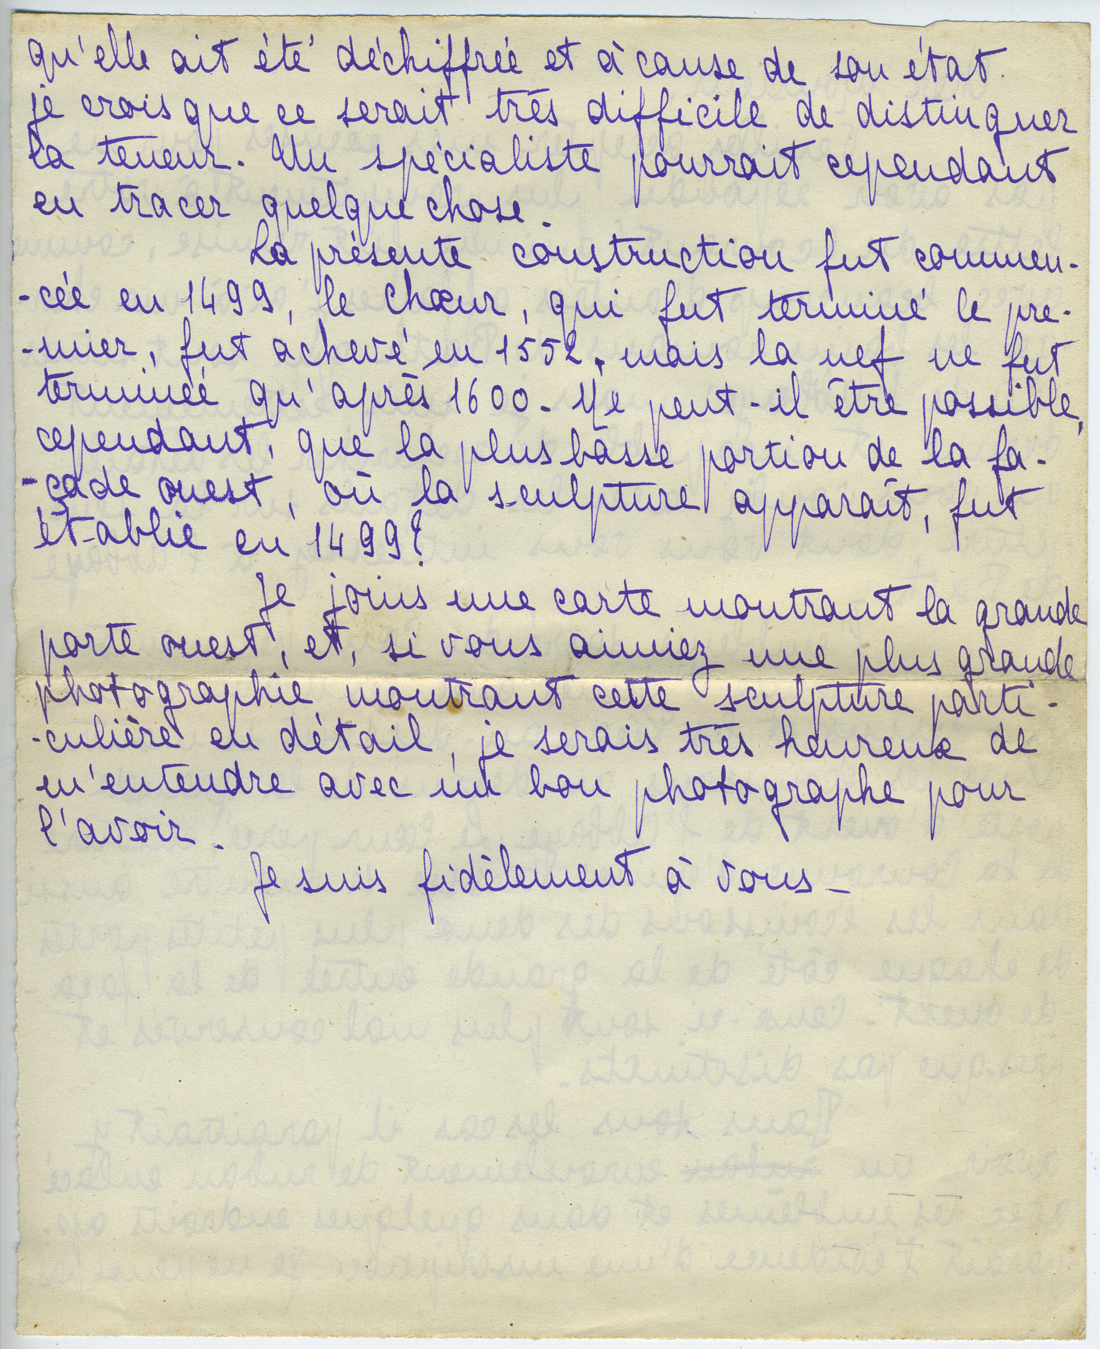 qu'elle ait été déchiffrée et à cause de son état
je crois que ce serait très difficile de distinguer
la teneur. Un spécialiste pourrait cependant
en tracer quelque chose.
La présente construction fut commen-
-cée en 1499, le chœur, qui fut terminé le pre-
-mier, fut achevé en 1552, mais la nef ne fut
terminée qu'après 1600. Ne peut-il être possible,
cependant, que la plus basse portion de la fa-
-çade ouest, où la sculpture apparaît, fut
établie en 1499?
Je joins une carte montrant la grande
porte ouest, et, si vous aimiez une plus grande
photographie montrant cette sculpture parti-
-culière en détail, je serais très heureux de
m'entendre avec un bon photographe pour
l'avoir.
Je suis fidèlement à vous_